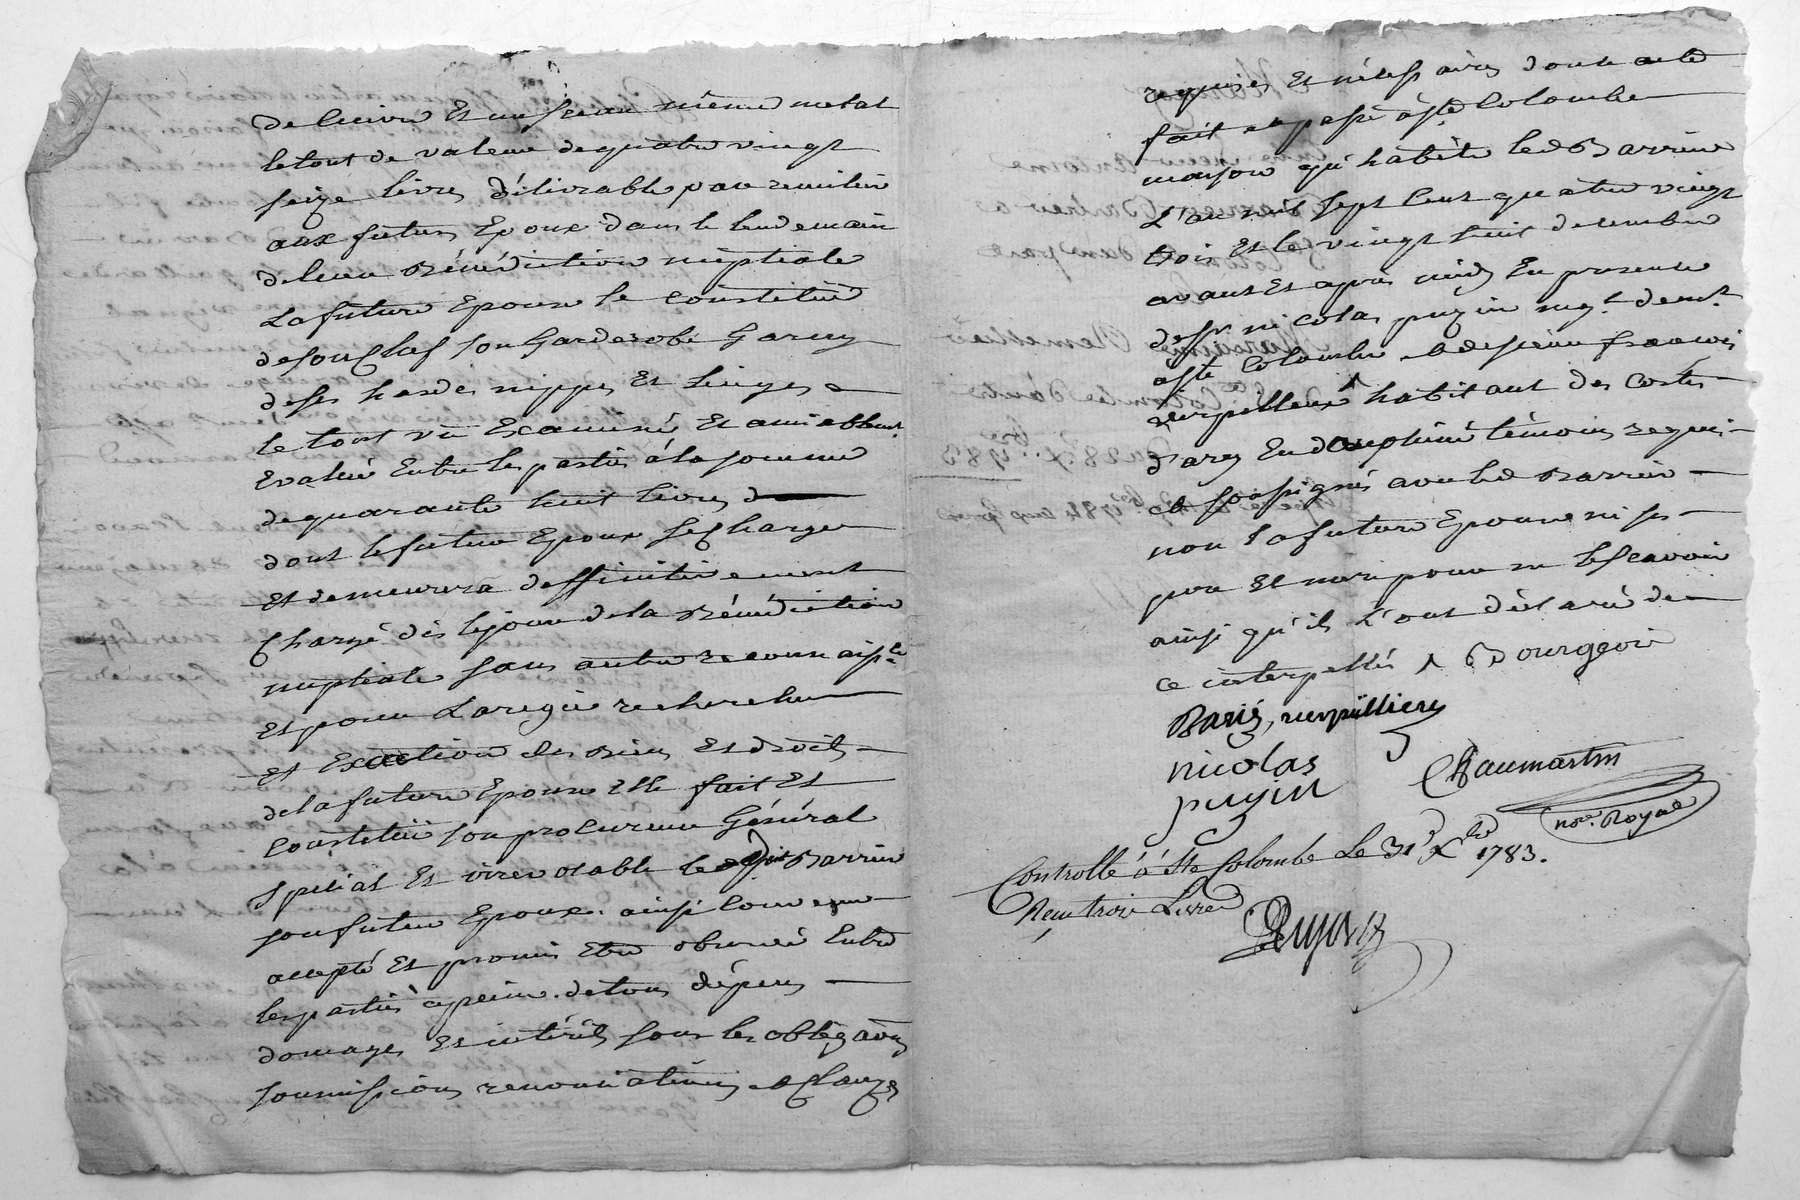 de Cuivre Et un sceau même metal
le tout de valeur de quatre vingt
seize livres délivrable par Lemilieu
aux futurs Epoux dans le lendemain
de leur Bénédiction nuptiale
La future Epouse se constitue
de son Chef son Garderobe Garny
de ses hardes nippes Et Linges
le tout vu Examiné Et amiablemt.
Evalué Entre les parties à la somme
de quarante huit livres
dont le futur Epoux se Charge
Et demeurera deffinitivement
Chargé dès le jour de la Bénédiction
nuptiale sans autre reconnaisce.
Et pour La régie recherche
Et Exaction des Biens Et droits
de la future Epouse Elle fait Et
Constitue son procureur Général
Spécial Et irrevocable led. Barrier
son futur Epoux. ainsi Convenu
accepté Et promis Etre observé Entre
les parties à peine de tous dépens
domages Et intérêts sous les obligãons
soumissions renonciations et Clauzes
requises Et nécessaires dont acte
fait et passé à Ste Colombe
maison qu'habite led Barrier
L'an mil sept Cent quatre vingt
trois Et le vingt huit decembre
avant Et après midy En presence
de sr. nicolas puzin mgt. demt.
à Ste Colombe et de sieur francois
reverpillieux habitant des Costes
d'arey En dauphiné témoins requis
et soussignés avec led Barrier
non la future Epouse ni ses
pere Et mere pour ne le sçavoir
ainsi qu'ils L'ont déclaré de
ce interpellés Bourgeois
nicolas
puzin
Chaumartin
nore. Royal
Controllé à Ste Colombe Le 31 Xbre 1783.
Reçu trois Livres